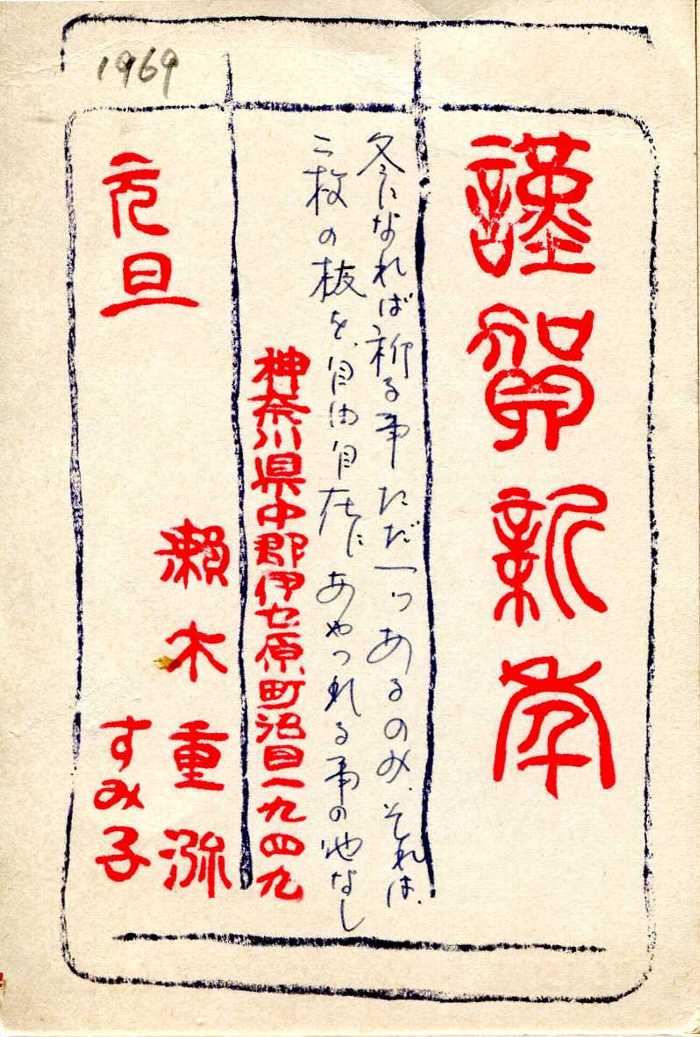 1969
謹賀新年
冬になれば祈る事ただ一つあるのみ、それは、
二枚の板を、自由自在にあやつれる事の他なし
神奈川県中郡伊セ原町沼目一九四九
瀬木重弥
すみ子
元旦